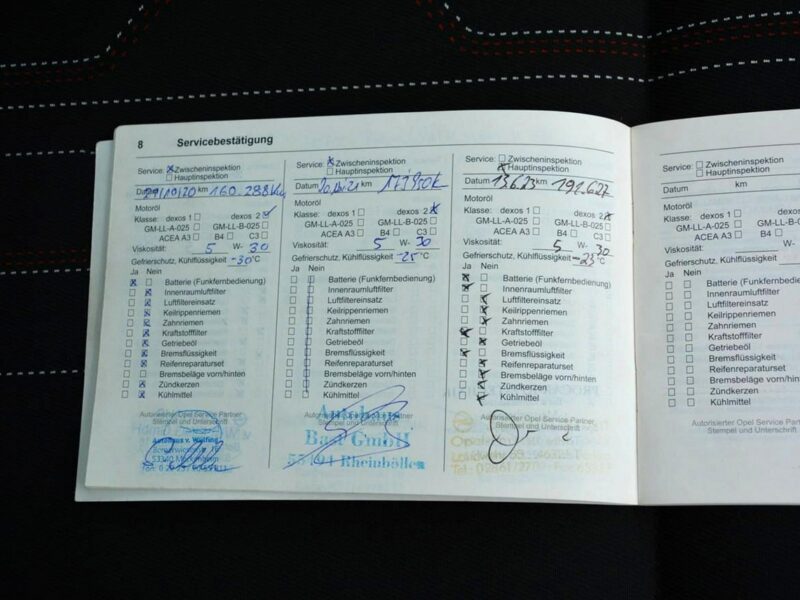 8 Servicebestätigung
Service: Zwischeninspektion
Hauptinspektion
Datum 29/10/20 km 160.288Km
Motoröl
Klasse: dexos 1 dexos 2
GM-LL-A-025 GM-LL-B-025
ACEA A3 B4 C3
Viskosität: 5 W- 30
Gefrierschutz, Kühlflüssigkeit -30 °C
Ja Nein
Batterie (Funkfernbedienung)
Innenraumluftfilter
Luftfiltereinsatz
Keilrippenriemen
Zahnriemen
Kraftstofffilter
Getriebeöl
Bremsflüssigkeit
Reifenreparaturset
Bremsbeläge vorn/hinten
Zündkerzen
Kühlmittel
Autorisierter Opel Service Partner
Stempel und Unterschrift
Autohaus v. Wülfing
53340 Meckenheim
Service: Zwischeninspektion
Hauptinspektion
Datum km
Motoröl
Klasse: dexos 1 dexos 2
GM-LL-A-025 GM-LL-B-025
ACEA A3 B4 C3
Viskosität: 5 W- 30
Gefrierschutz, Kühlflüssigkeit -25 °C
Ja Nein
Batterie (Funkfernbedienung)
Innenraumluftfilter
Luftfiltereinsatz
Keilrippenriemen
Zahnriemen
Kraftstofffilter
Getriebeöl
Bremsflüssigkeit
Reifenreparaturset
Bremsbeläge vorn/hinten
Zündkerzen
Kühlmittel
Autorisierter Opel Service Partner
Stempel und Unterschrift
Autohaus
GmbH
55494 Rheinböllen
Service: Zwischeninspektion
Hauptinspektion
Datum 13.6.23 km 192.627
Motoröl
Klasse: dexos 1 dexos 2
GM-LL-A-025 GM-LL-B-025
ACEA A3 B4 C3
Viskosität: 5 W- 30
Gefrierschutz, Kühlflüssigkeit -25 °C
Ja Nein
Batterie (Funkfernbedienung)
Innenraumluftfilter
Luftfiltereinsatz
Keilrippenriemen
Zahnriemen
Kraftstofffilter
Getriebeöl
Bremsflüssigkeit
Reifenreparaturset
Bremsbeläge vorn/hinten
Zündkerzen
Kühlmittel
Autorisierter Opel Service Partner
Stempel und Unterschrift
Service: Zwischeninspektion
Hauptinspektion
Datum km
Motoröl
Klasse: dexos 1
GM-LL-A-025
ACEA A3
Viskosität:
Gefrierschutz, Kühlflüssigkeit
Ja Nein
Batterie (Funkfernbe
Innenraumluftfilter
Luftfiltereinsatz
Keilrippenriemen
Zahnriemen
Kraftstofffilter
Getriebeöl
Bremsflüssigkeit
Reifenreparaturset
Bremsbeläge vorn/hi
Zündkerzen
Kühlmittel
Autorisierter Opel Service P
Stempel und Unterschri